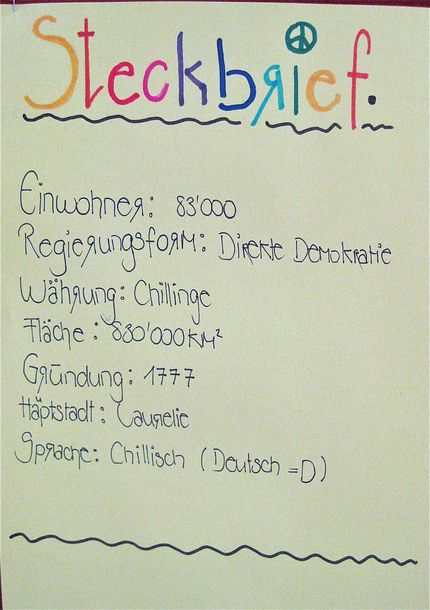 Steckbrief.
Einwohner: 83'000
Regierungsform: Direkte Demokratie
Währung: Chillinge
Fläche: 830'000 km²
Gründung: 1777
Häptstadt: Laurelie
Sprache: Chillisch (Deutsch =D)